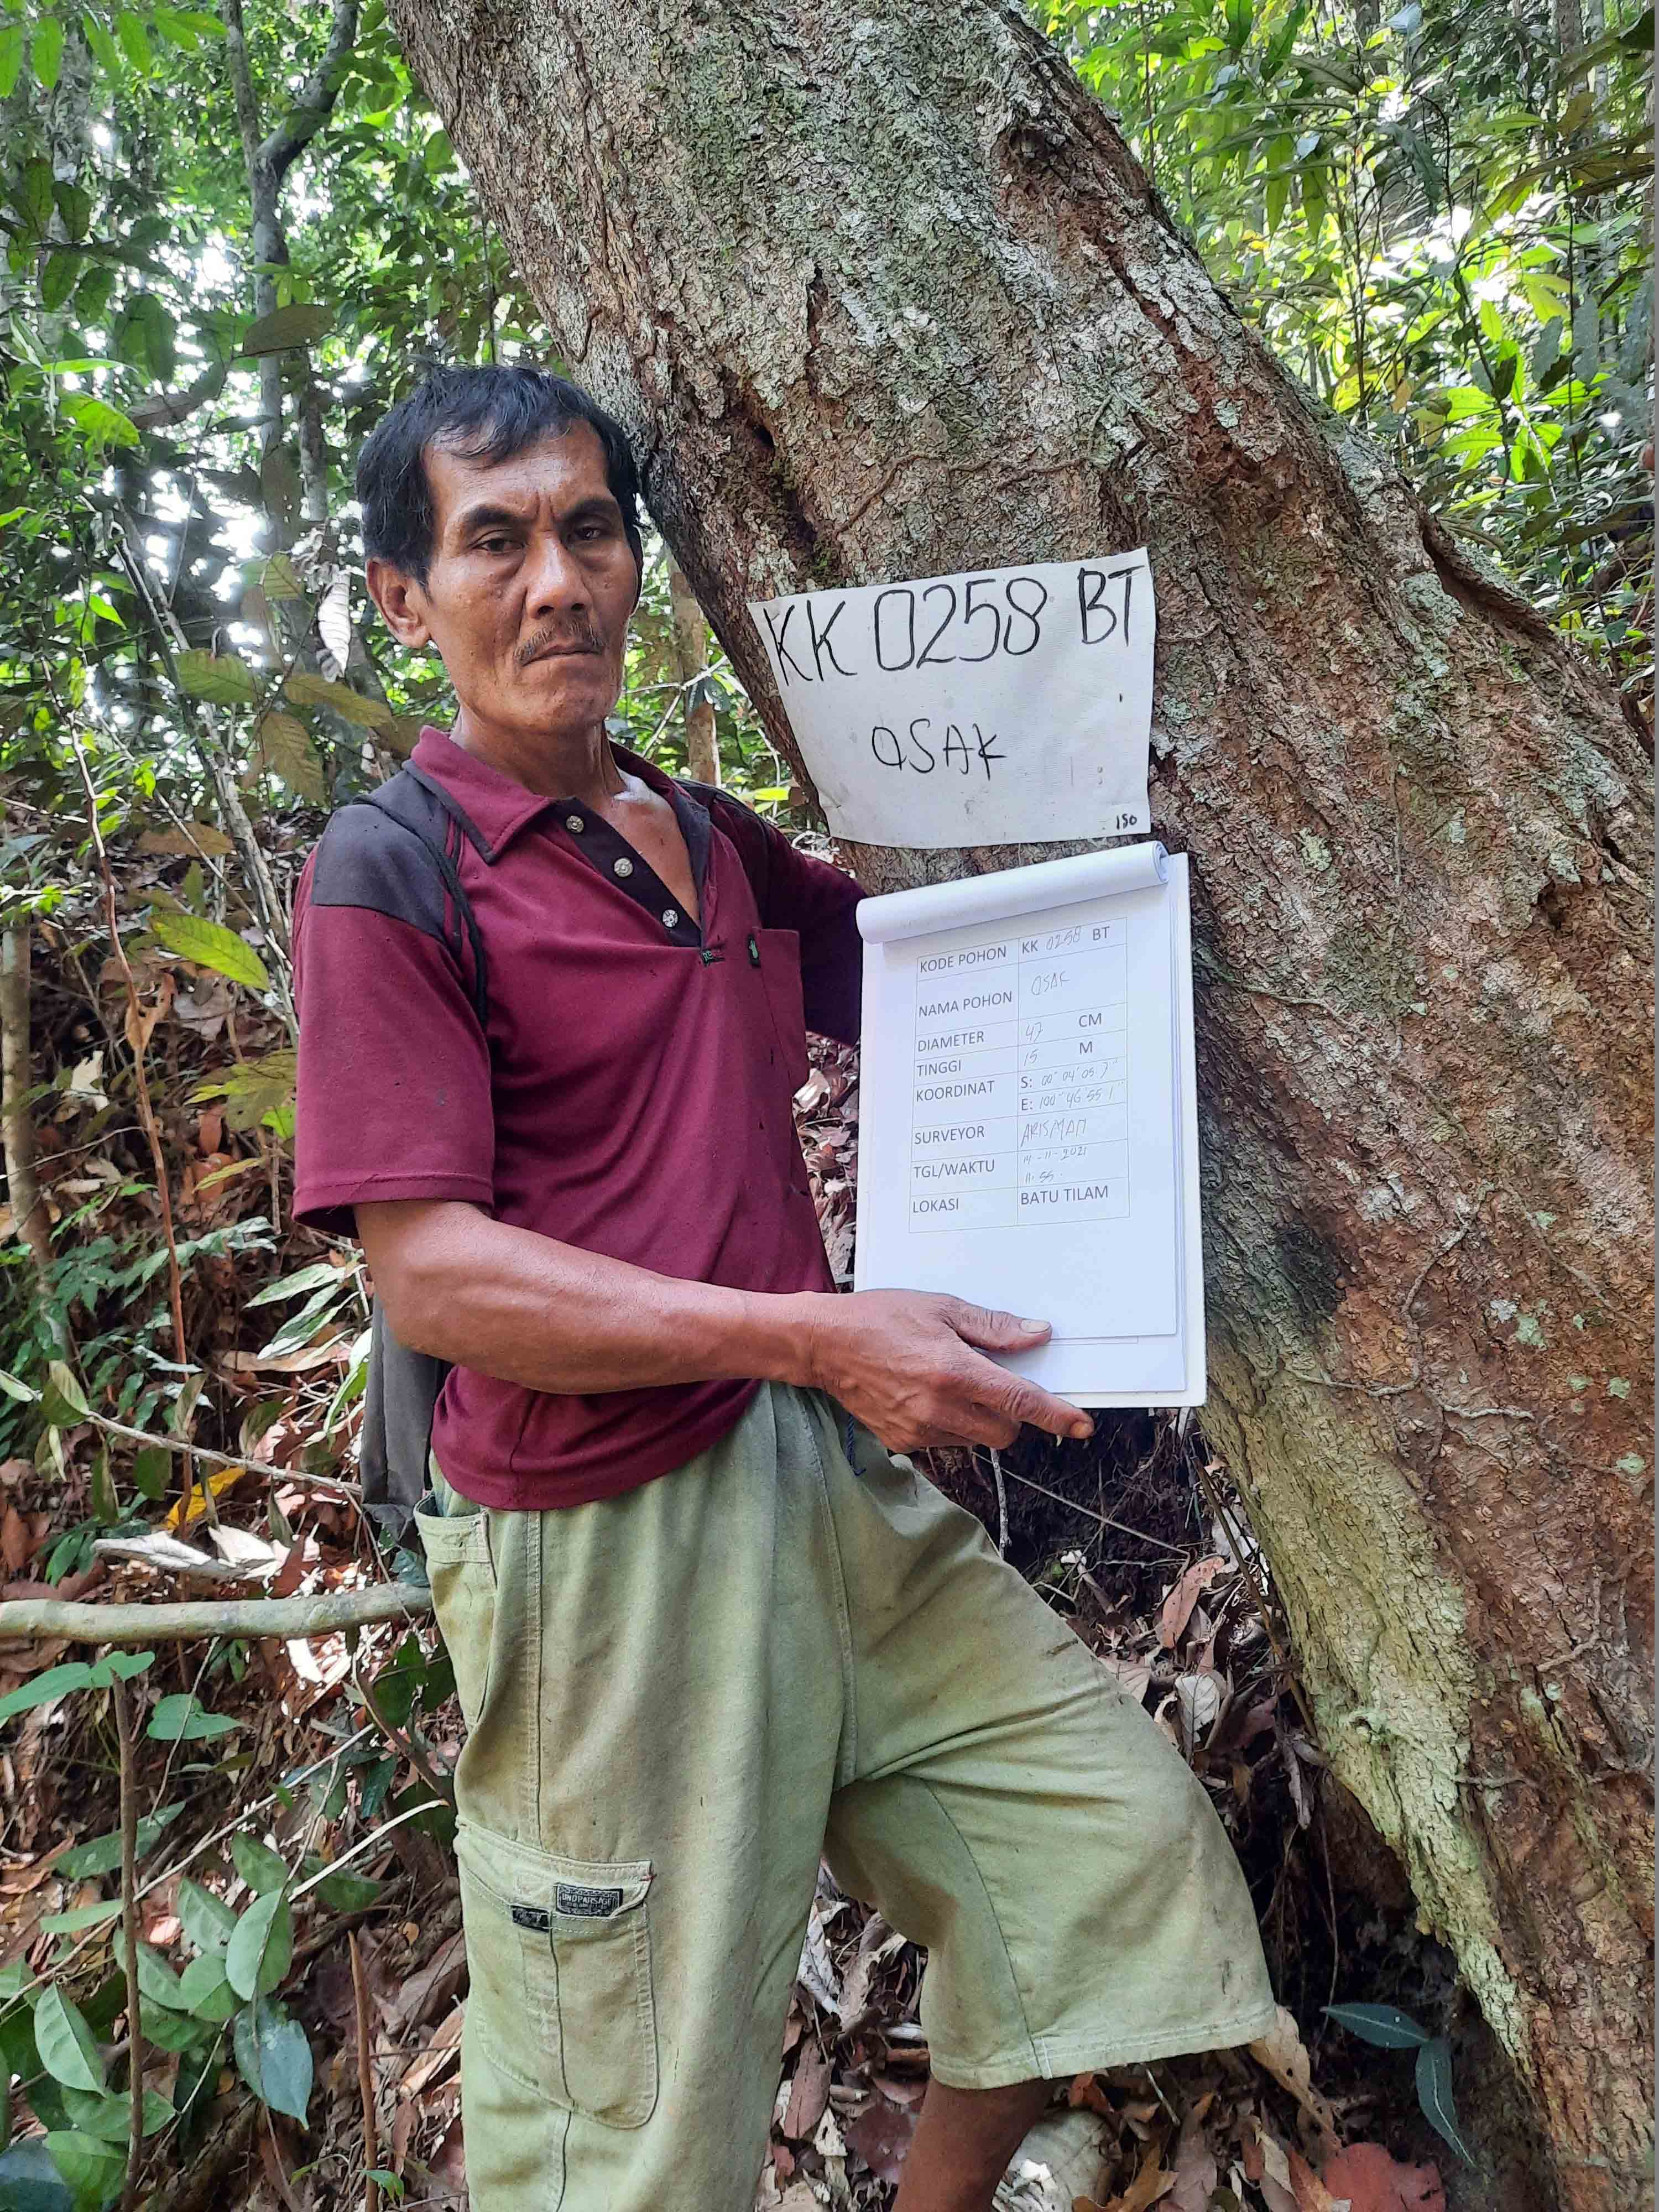 KK 0258 BT
OSAK
150
KODE POHON KK 0258 BT
NAMA POHON OSAK
DIAMETER 47 CM
TINGGI 15 M
KOORDINAT S: 00° 04' 05.7"
E: 100° 46' 55.1"
SURVEYOR ARISMAN
TGL/WAKTU 14-11-2021
11.55
LOKASI BATU TILAM